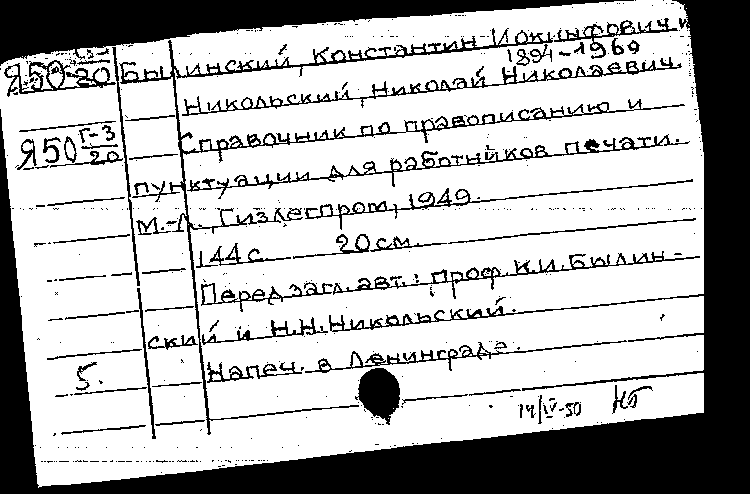 Я50 Г-3/20 Былинский, Константин Иокинфович и
1894-1969
Никольский, Николай Николаевич.
Я50 Г-3/20 Справочник по правописанию и
пунктуации для работников печати.
М.-Л., Гизлегпром, 1949.
144 с. 20 см.
Перед загл. авт.: проф. К.И. Былин-
ский и Н.Н. Никольский.
5. Напеч. в Ленинграде.
14/IV-50 НБ